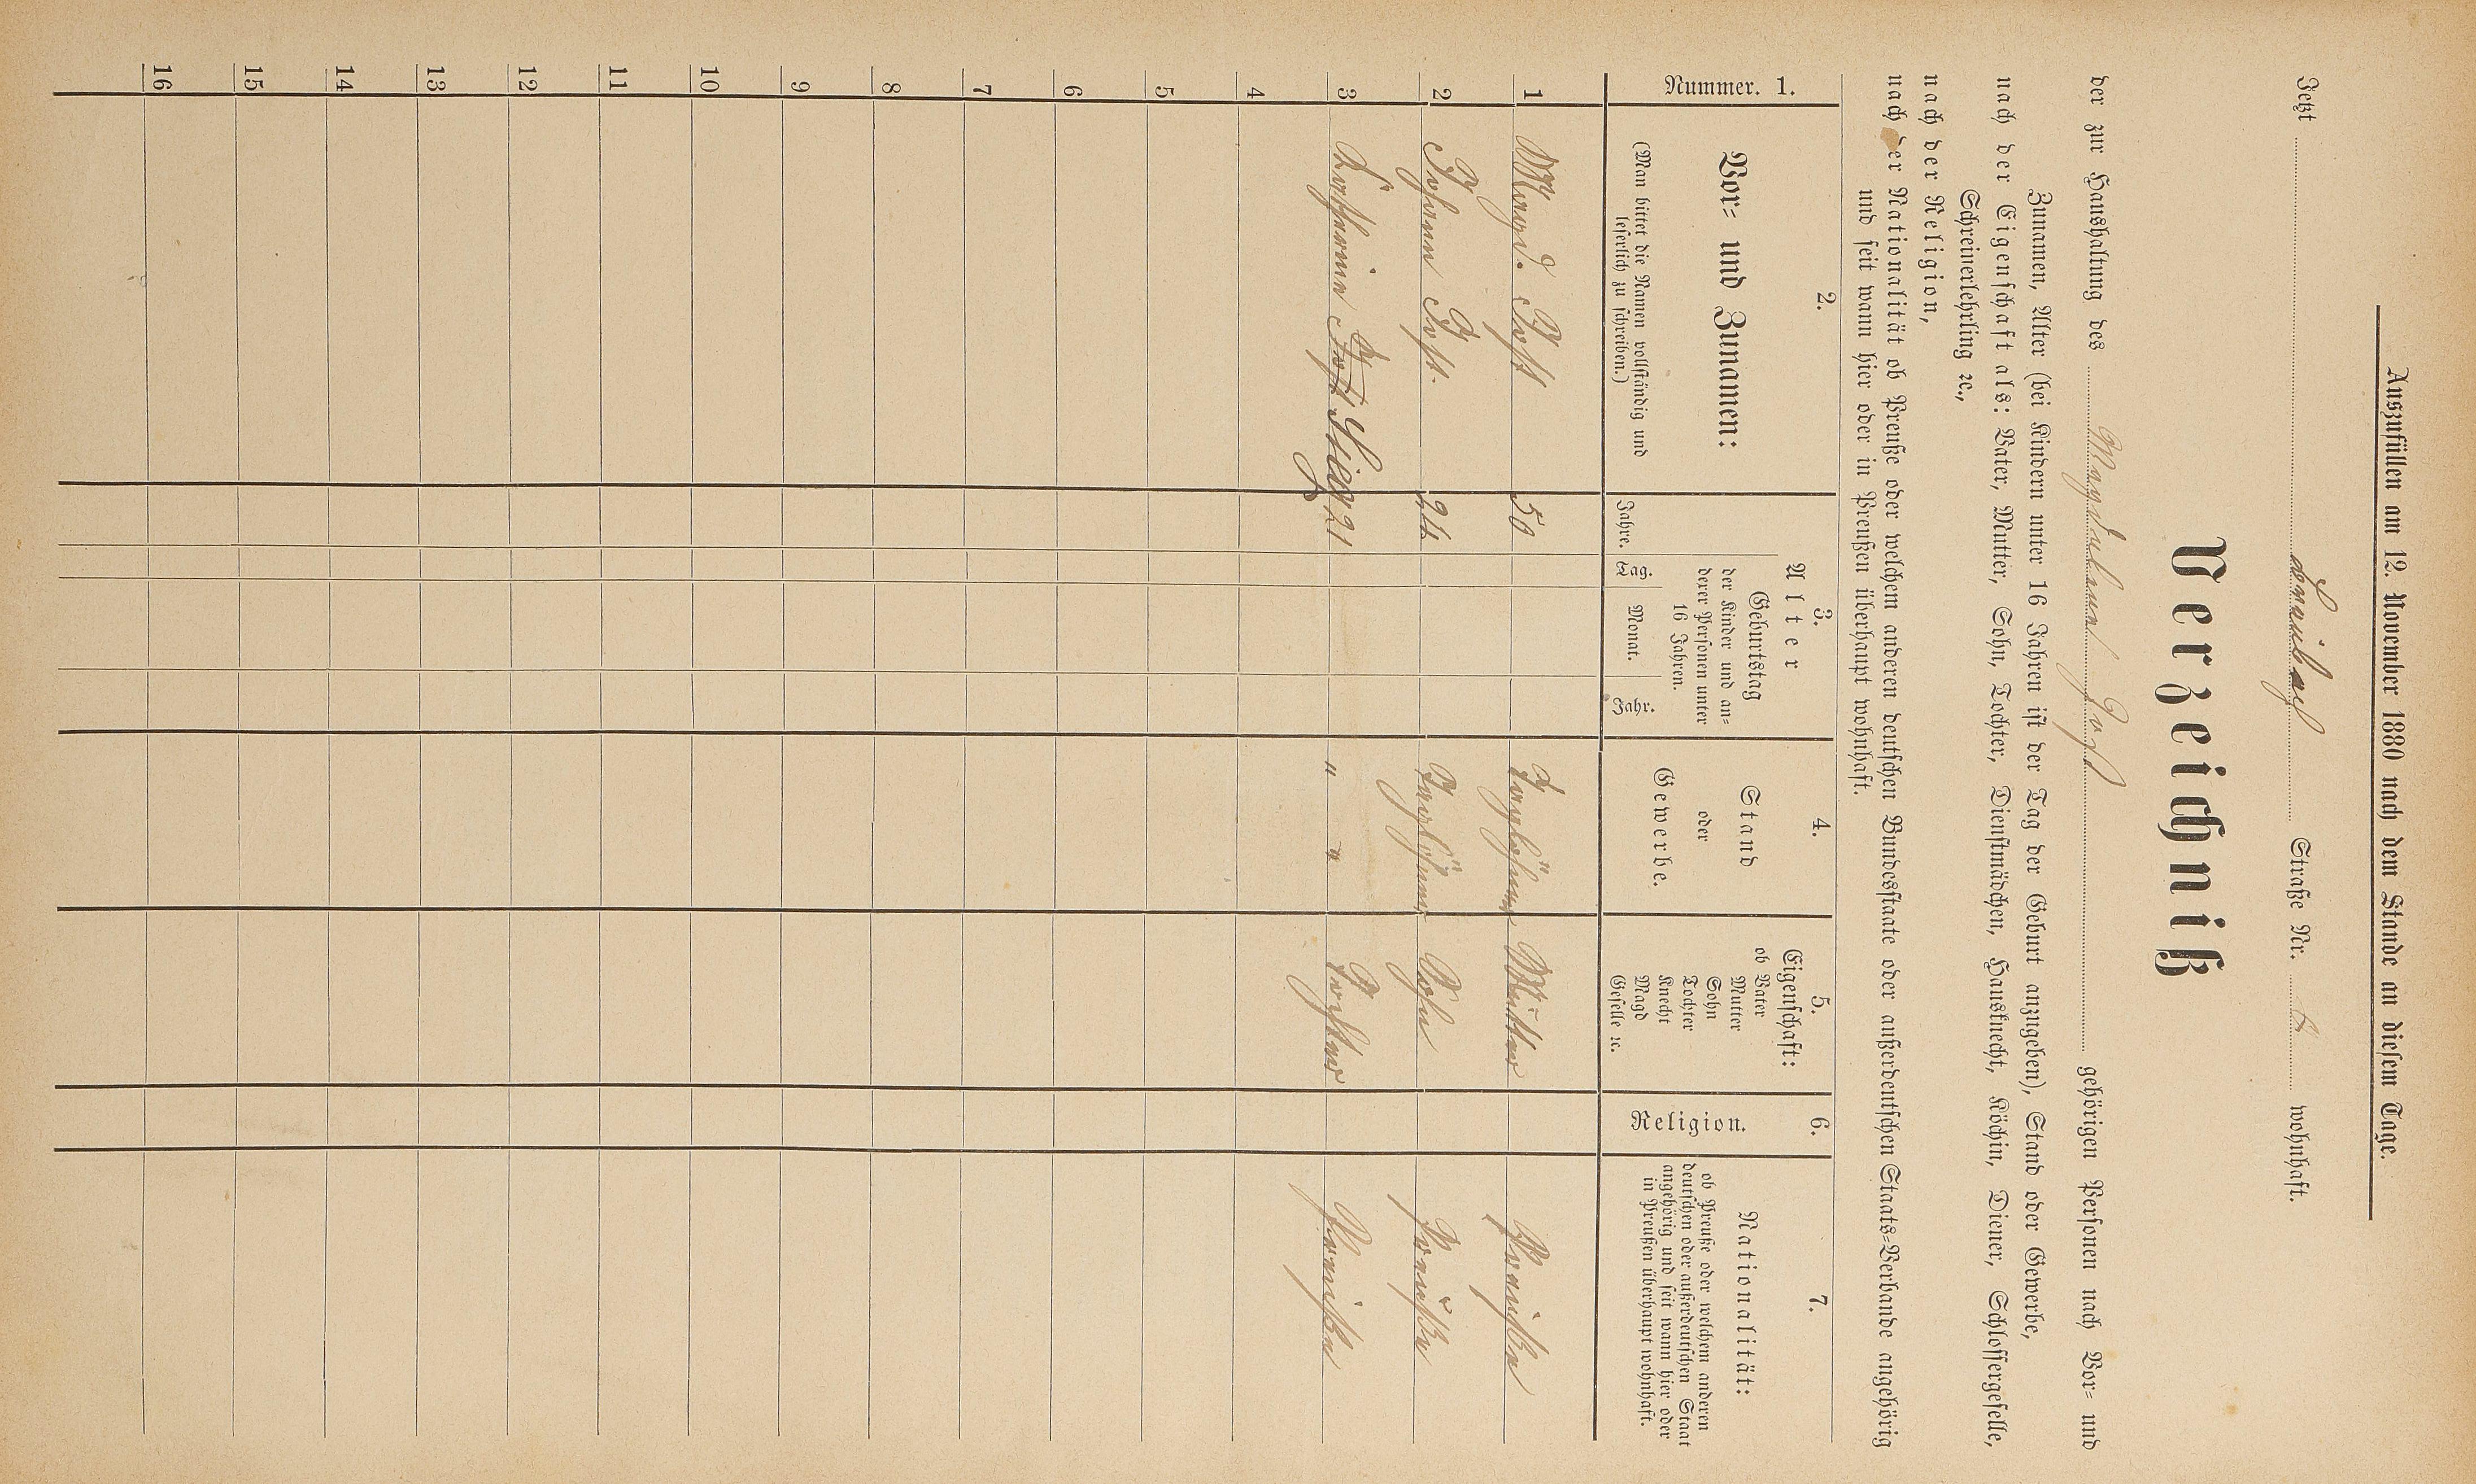 Auszufüllen am 12. November 1880 nach dem Stande an diesem Tage.
Jetzt Straße Nr. wohnhaft.
Verzeichniß
der zur Haushaltung des Magdalena Jost gehörigen Personen nach Vor- und
Zunamen, Alter (bei Kindern unter 16 Jahren ist der Tag der Geburt anzugeben), Stand oder Gewerbe,
nach der Eigenschaft als: Vater, Mutter, Sohn, Tochter, Dienstmädchen, Hausknecht, Köchin, Diener, Schlossergeselle,
Schreinerlehrling ꝛc.,
nach der Religion,
nach der Nationalität ob Preuße oder welchem anderen deutschen Bundesstaate oder außerdeutschen Staats-Verbande angehörig
und seit wann hier oder in Preußen überhaupt wohnhaft.
Nummer. 1.
2.
Vor- und Zunamen:
(Man bittet die Namen vollständig und
leserlich zu schreiben.)
3.
Alter
Jahre.
Geburtstag
der Kinder und an-
derer Personen unter
16 Jahren.
Tag. Monat. Jahr.
4.
Stand
oder
Gewerbe.
5.
Eigenschaft:
ob Vater
Mutter
Sohn
Tochter
Knecht
Magd
Geselle ꝛc.
6.
Religion.
7.
Nationalität:
ob Preuße oder welchem anderen
deutschen oder außerdeutschen Staat
angehörig und seit wann hier oder
in Preußen überhaupt wohnhaft.
1 Magd. Jost 50 Taglöhner Mutter Preuße
2 Johann Jost. 24 Taglöhner Sohn Preuße
3 Katharina Jost 21 " " Tochter Preuße
4
5
6
7
8
9
10
11
12
13
14
15
16